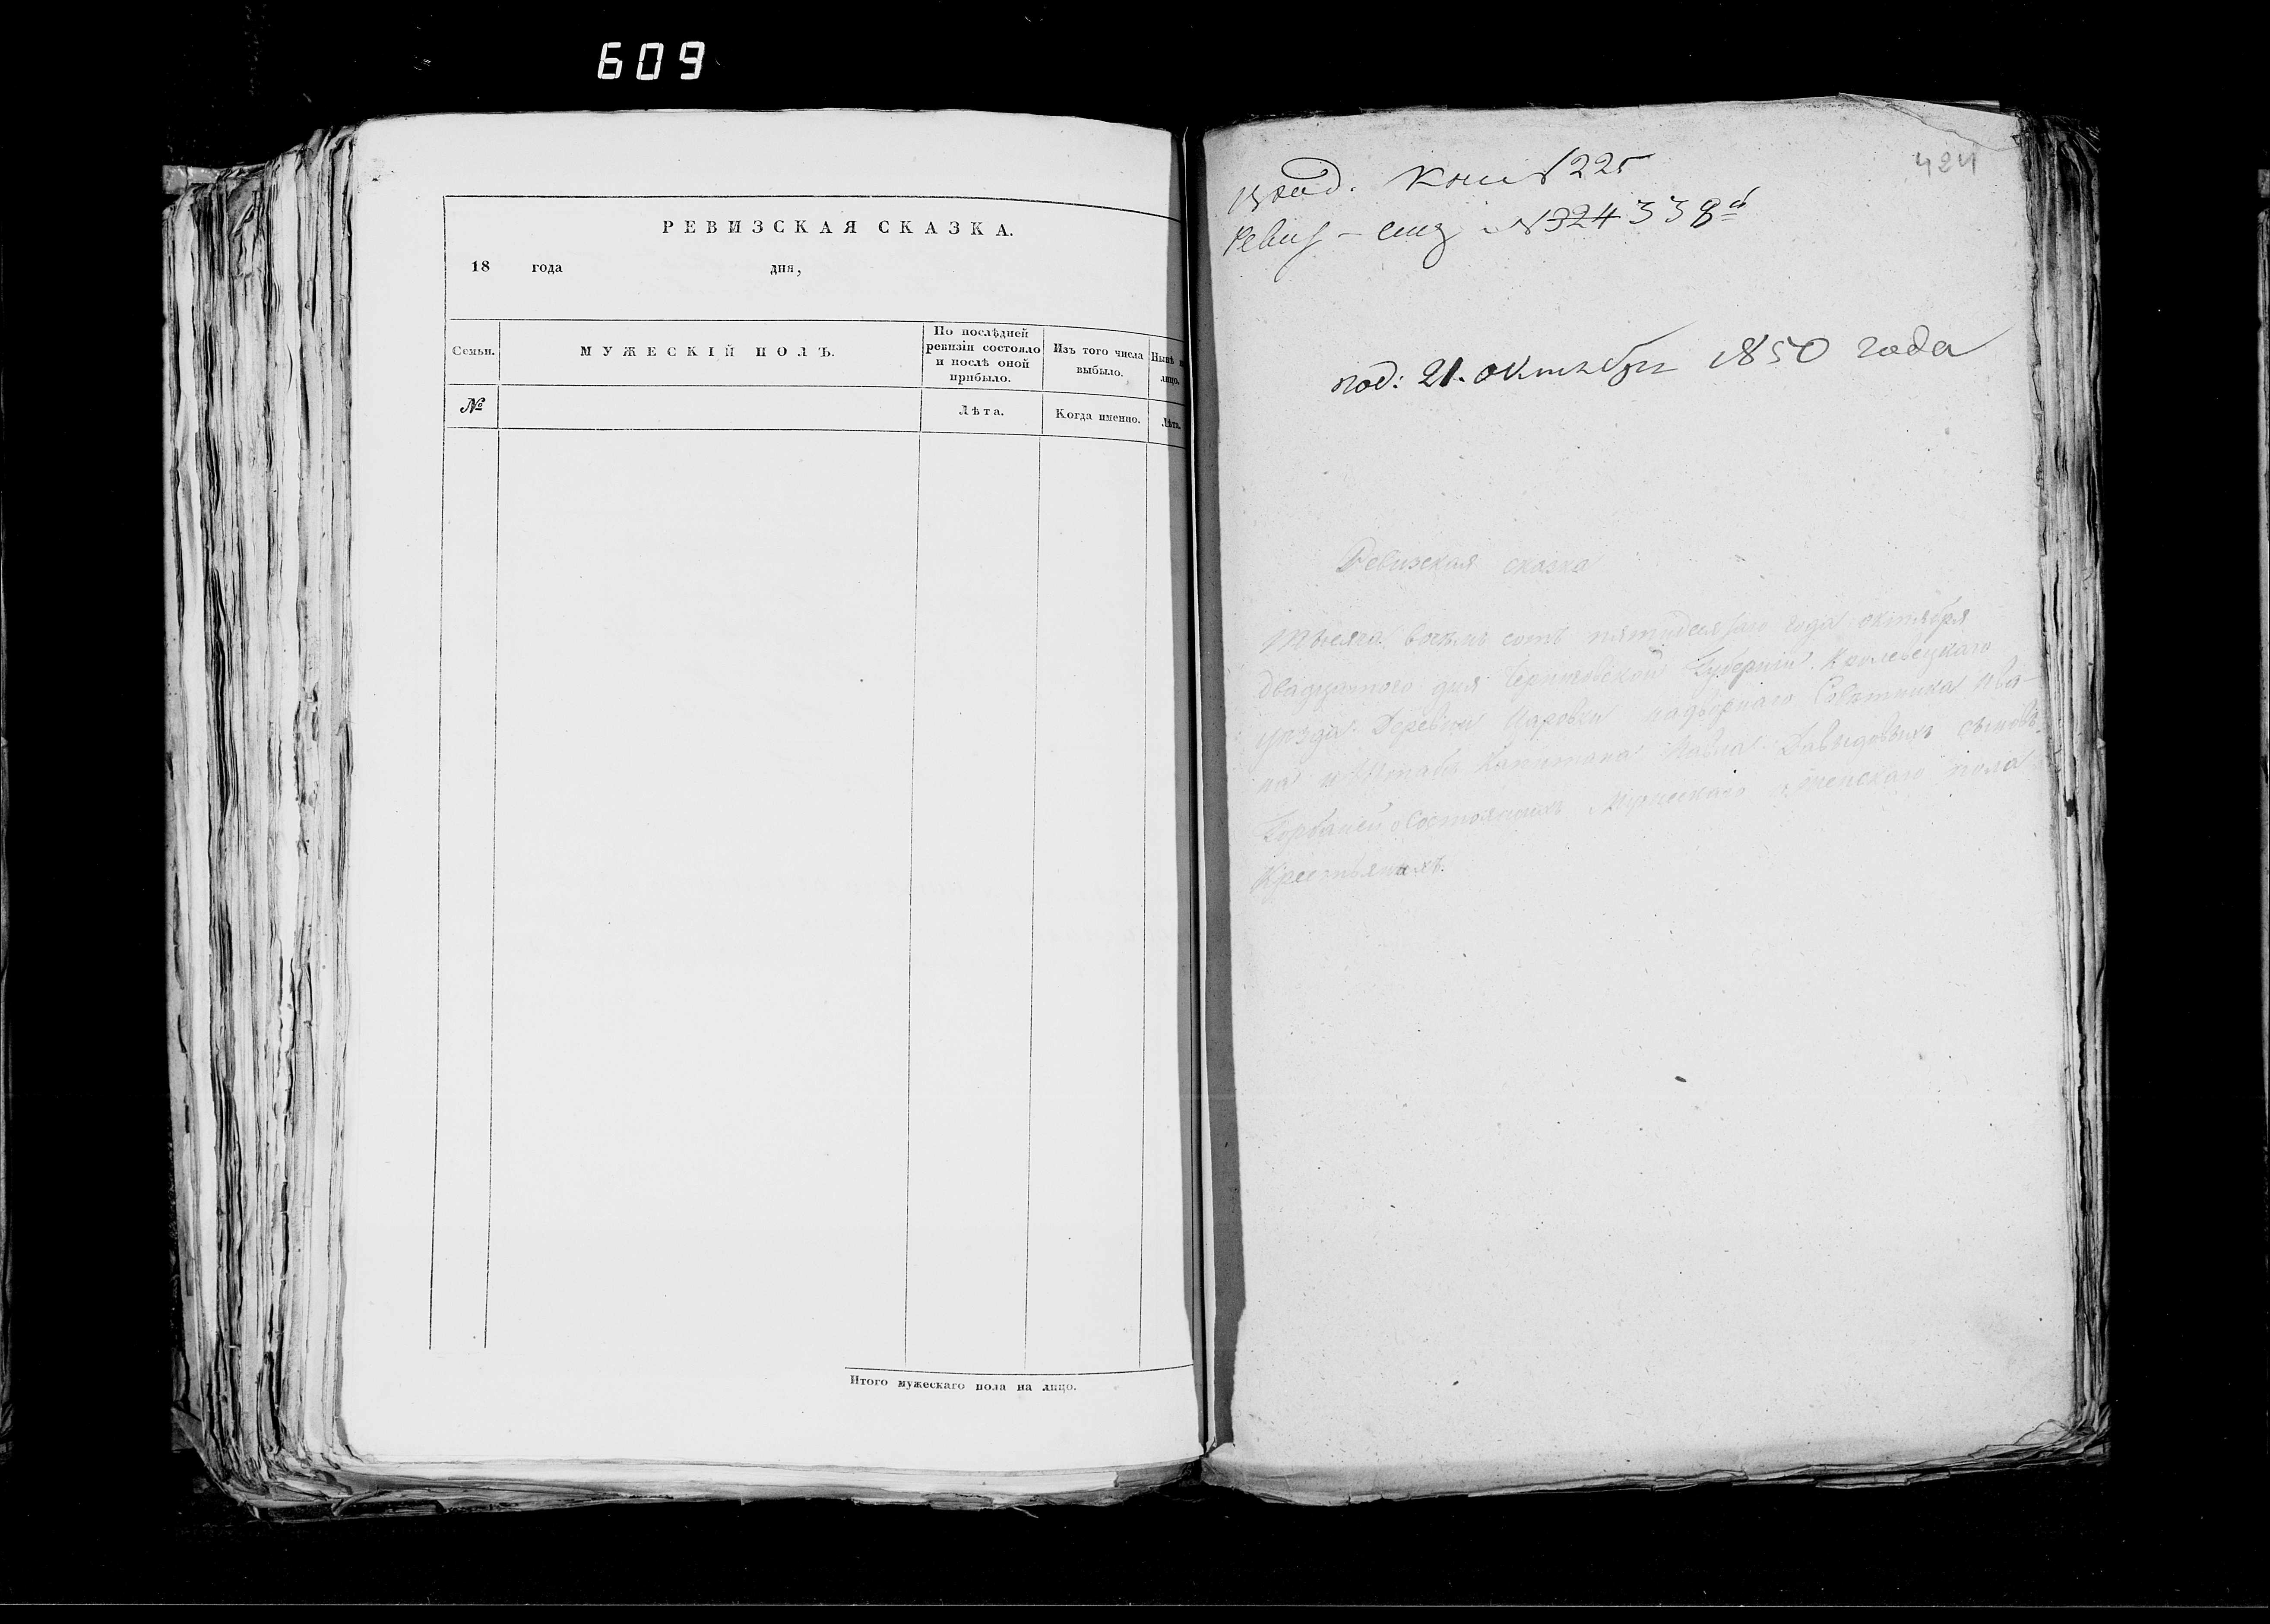 609
РЕВИЗСКАЯ СКАЗКА.
18 года дня,
Семьи. МУЖЕСКІЙ ПОЛЪ. По послѣдней ревизіи состояло и послѣ оной прибыло. Изъ того числа выбыло. Нынѣ лицо.
№ Лѣта. Когда именно. Лѣта.
Итого мужескаго пола на лицо.
424
Вход. Кни № 225
Ревиз – № 324 338
под: 21. октября 1850 года
Ревизская сказка
Тысяча восемь сотъ пятидесятаго года октября
двадцатого дня Черниговской Губерніи Кролевецкаго
уѣзда Деревни надворнаго Совѣтника Ива-
на и Штабъ Капитана Павла Давыдовыхъ сыновъ
о состоящихъ Мужескаго и женскаго пола
Крестьянахъ.